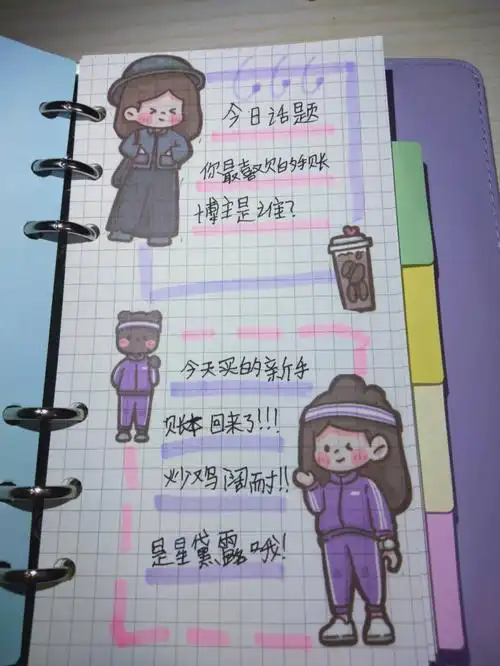 今日话题
你最喜欢的手账
博主是谁?
今天买的新手
账本回来了!!!
炒鸡闊耐!!
是星黛露哦!